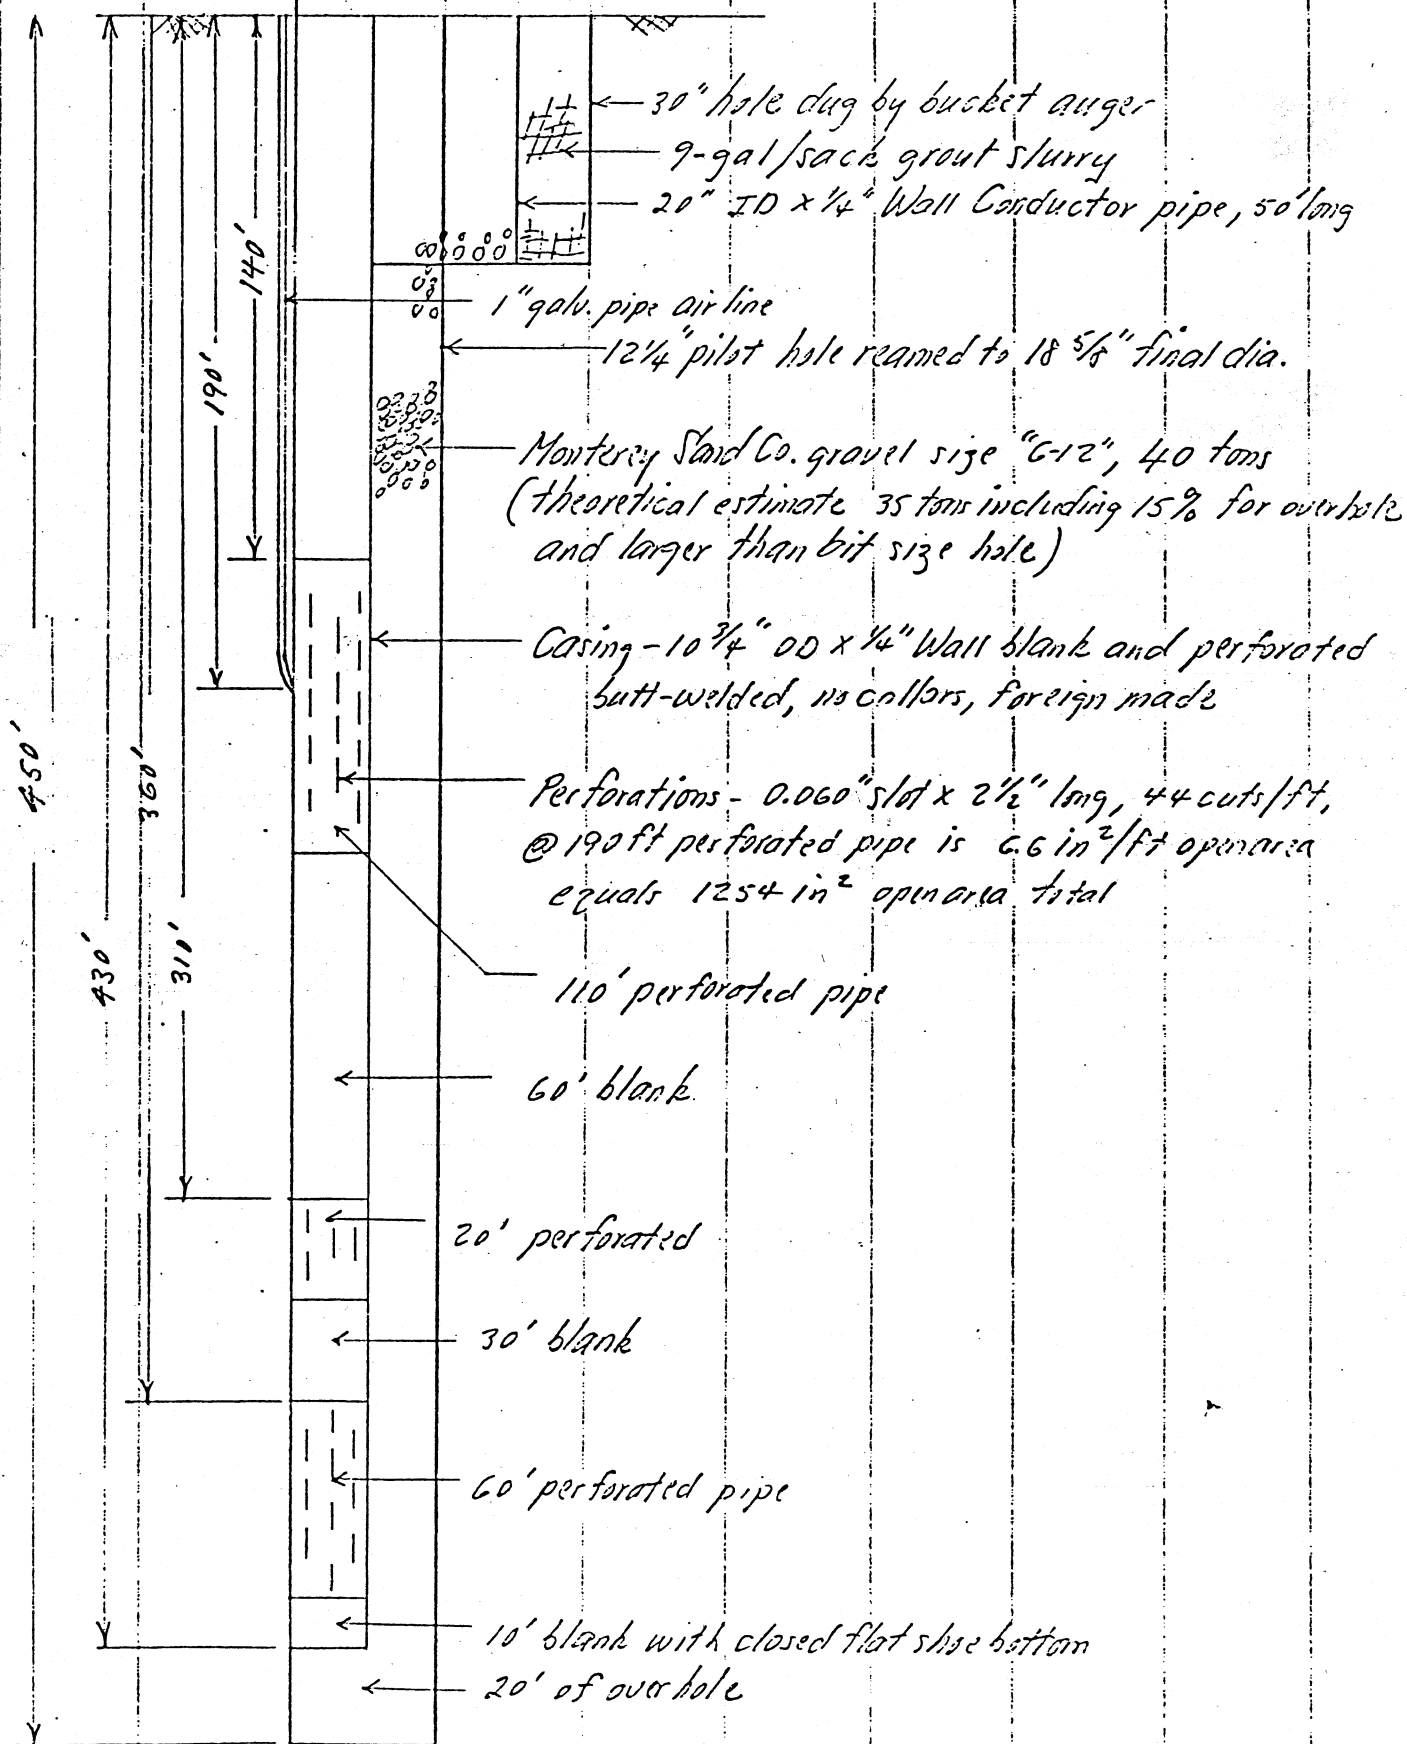 30" hole dug by bucket auger
9-gal/sack grout slurry
20" ID x 1/4" Wall Conductor pipe, 50' long
140'
1" galv. pipe air line
12 1/4" pilot hole reamed to 18 5/8" final dia.
190'
Monterey Sand Co. gravel size "6-12", 40 tons
(theoretical estimate 35 tons including 15% for overhole
and larger than bit size hole)
Casing - 10 3/4" OD x 1/4" Wall blank and perforated
butt-welded, no collars, foreign made
450'
360'
Perforations - 0.060" slot x 2 1/2" long, 44 cuts/ft,
@ 190 ft perforated pipe is 6.6 in²/ft open area
equals 1254 in² open area total
430'
310'
110' perforated pipe
60' blank
20' perforated
30' blank
60' perforated pipe
10' blank with closed flat shoe bottom
20' of overhole